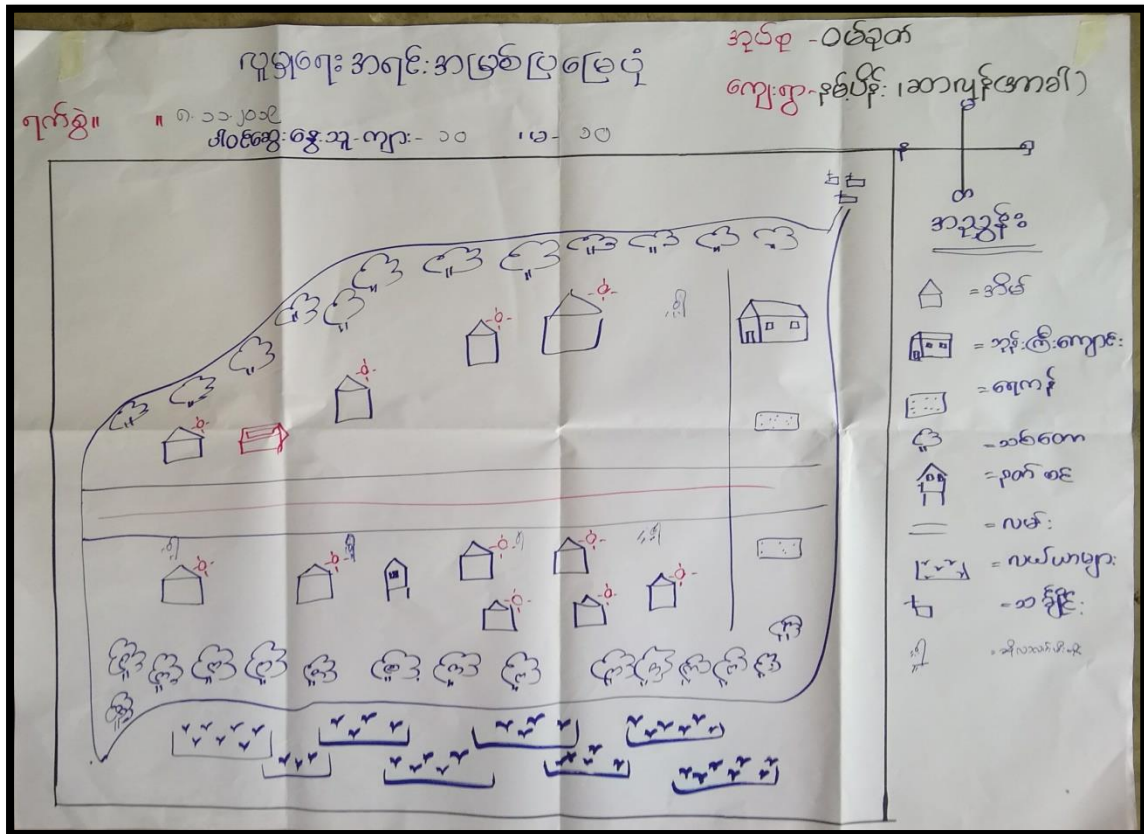 လူမှုရေး အရင်းအမြစ်ပြမြေပုံ
အုပ်စု - ဝမ်ခုတ်
ကျေးရွာ - နမ့်ပိန်း
ရက်စွဲ။ ။ ၈.၁၁.၂၀၁၉
ပါဝင်ဆွေးနွေးသူ - ကျား - ၁၀ ၊ မ - ၁၀
မ
န
ရှ
တ
အညွှန်း
= အိမ်
= ဘုန်းကြီးကျောင်း
= ရေကန်
= သစ်တော
= နတ်စင်
= လမ်း
= လယ်ယာများ
= သင်္ချိုင်း